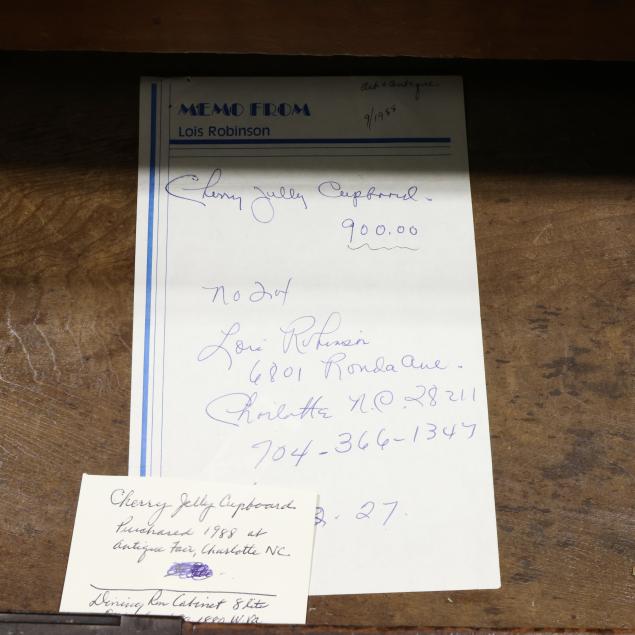 Art & Antique
9/1988
MEMO FROM
Lois Robinson
Cherry Jelly Cupboard.
900.00
No 24
Lois Robinson
6801 Ronda Ave.
Charlotte N.C. 28211
704-366-1347
2.27.
Cherry Jelly Cupboard
Purchased 1988 at
Antique Fair, Charlotte NC.
Dining Rm Cabinet 8 lite
1880 W.Va.